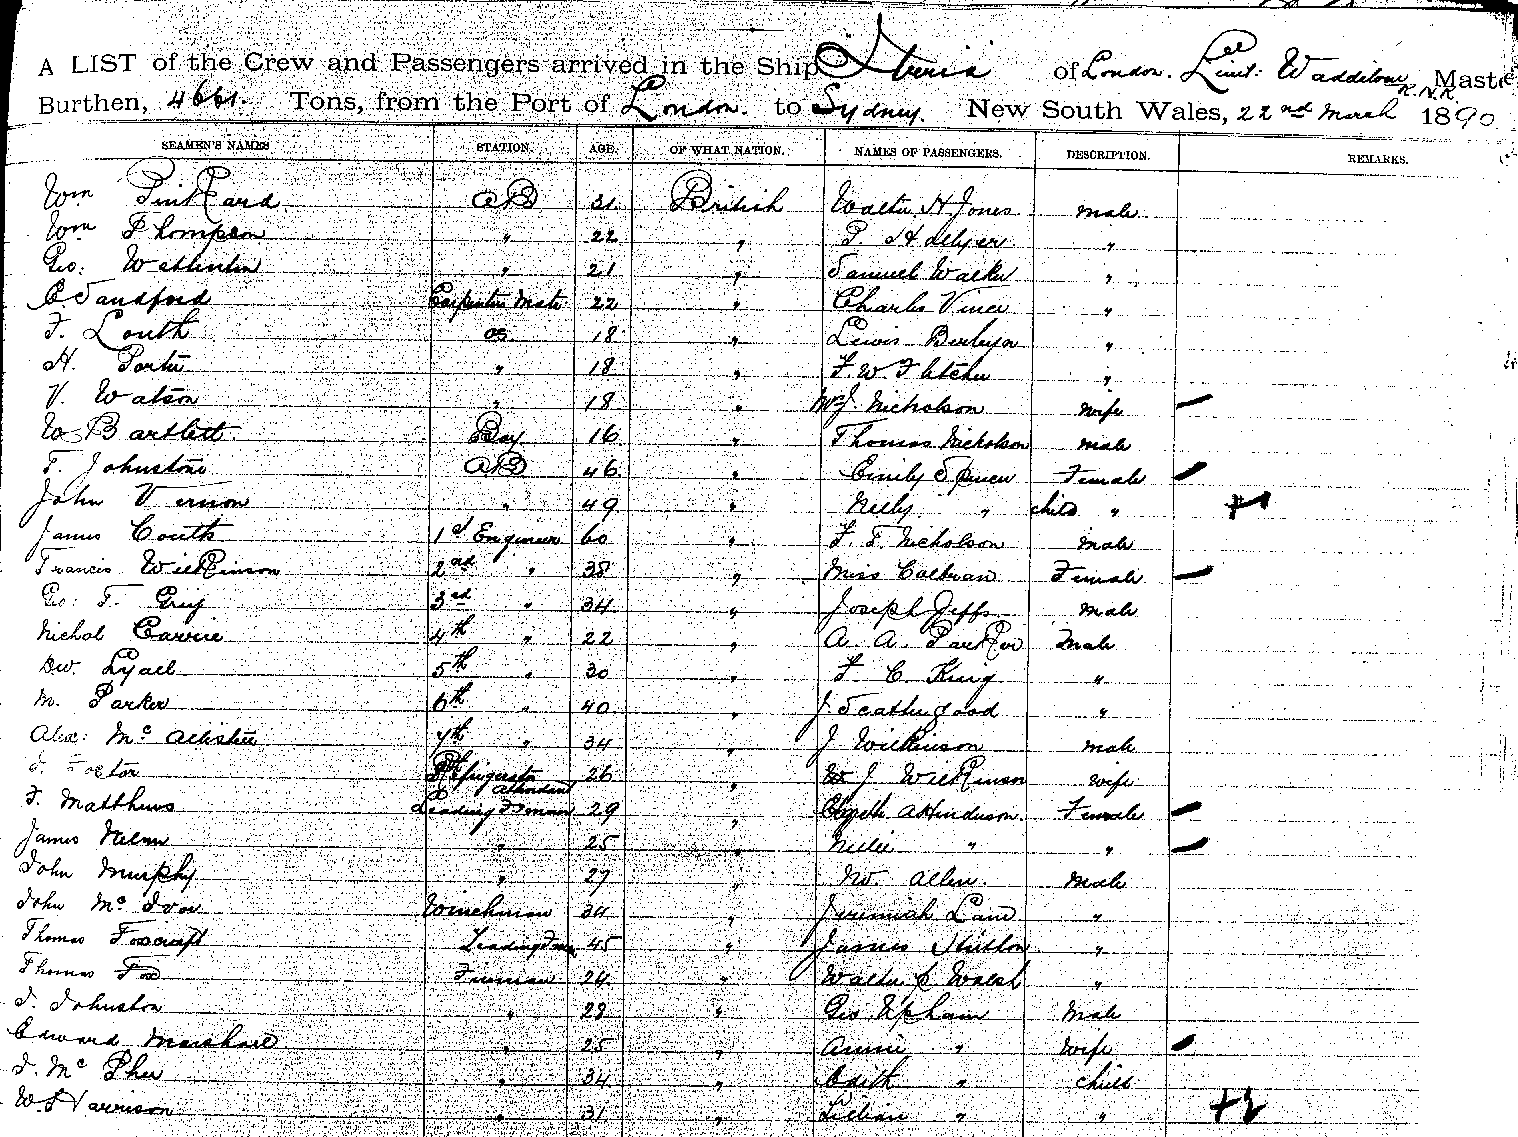 A LIST of the Crew and Passengers arrived in the Ship Iberia of London. Lieut: Master
Burthen, 4661. Tons, from the Port of London. to Sydney. New South Wales, 22nd March 1890
SEAMEN'S NAMES STATION. AGE. OF WHAT NATION. NAMES OF PASSENGERS. DESCRIPTION. REMARKS.
Wm Pinkard AB 31 British Walter H Jones male
Wm Thompson " 22 " P. "
Geo: " 21 " Samuel Walker "
C. Sandford Carpenters Mate 22 " Charles Vince "
F. Louth OS 18 " Lewis "
H. Porter " 18 " F. W. Fletcher "
V. Watson " 18 " Mrs J. Nicholson wife
W Bartlett Boy 16 " Thomas Nicholson male
T. Johnstone AB 46 " Emily Spencer Female
John Vernon " 49 " Nelly " child "
James Coutts 1st Engineer 60 " F. T. Nicholson male
Francis Wilkinson 2nd " 38 " Miss Female
Geo: F. Greig 3rd " 34 " Joseph Jeffs male
Nichol Carrie 4th " 22 " A. A. Parker Male
Dw. Lyall 5th " 30 " F C King "
M. Parker 6th " 40 " J. Scathugood "
Alex: Mc Alister 7th " 34 " J Wilkinson male
Refrigerator attendant 26 " W J Wilkinson wife
F. Matthews Leading Fman 29 " A Henderson Female
James " 25 " Nellie " "
John Murphy " 27 " W. Allen. Male
John Mc Ivor Winchman 34 " Jeremiah Lane "
Thomas Foxcroft Leading Fman 45 " James Hutton "
Thomas Fox Fireman 24 " Walter C Walsh "
J. Johnston " 28 " Geo Upham Male
Edward Marshall " 25 " Annie " wife
J. Mc Phee " 34 " Edith " child
W. Harrison " 31 " Lillian " "